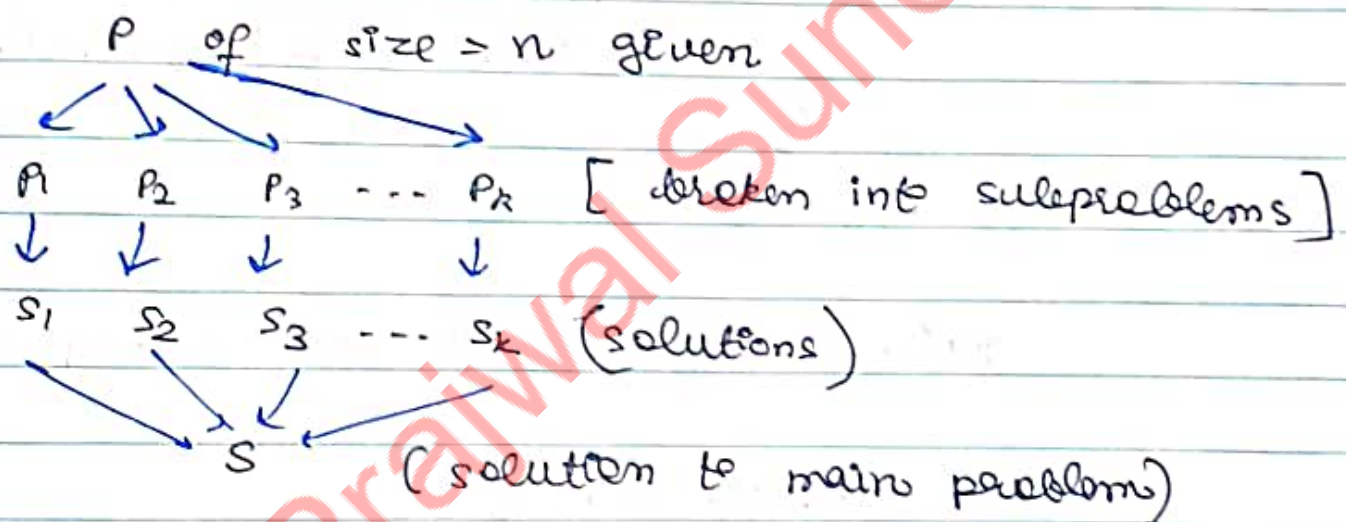 P of size = n given
P1 P2 P3 ---- Pk [ broken into subproblems ]
S1 S2 S3 ---- Sk (solutions)
S (solution to main problem)
Prajwal Sun